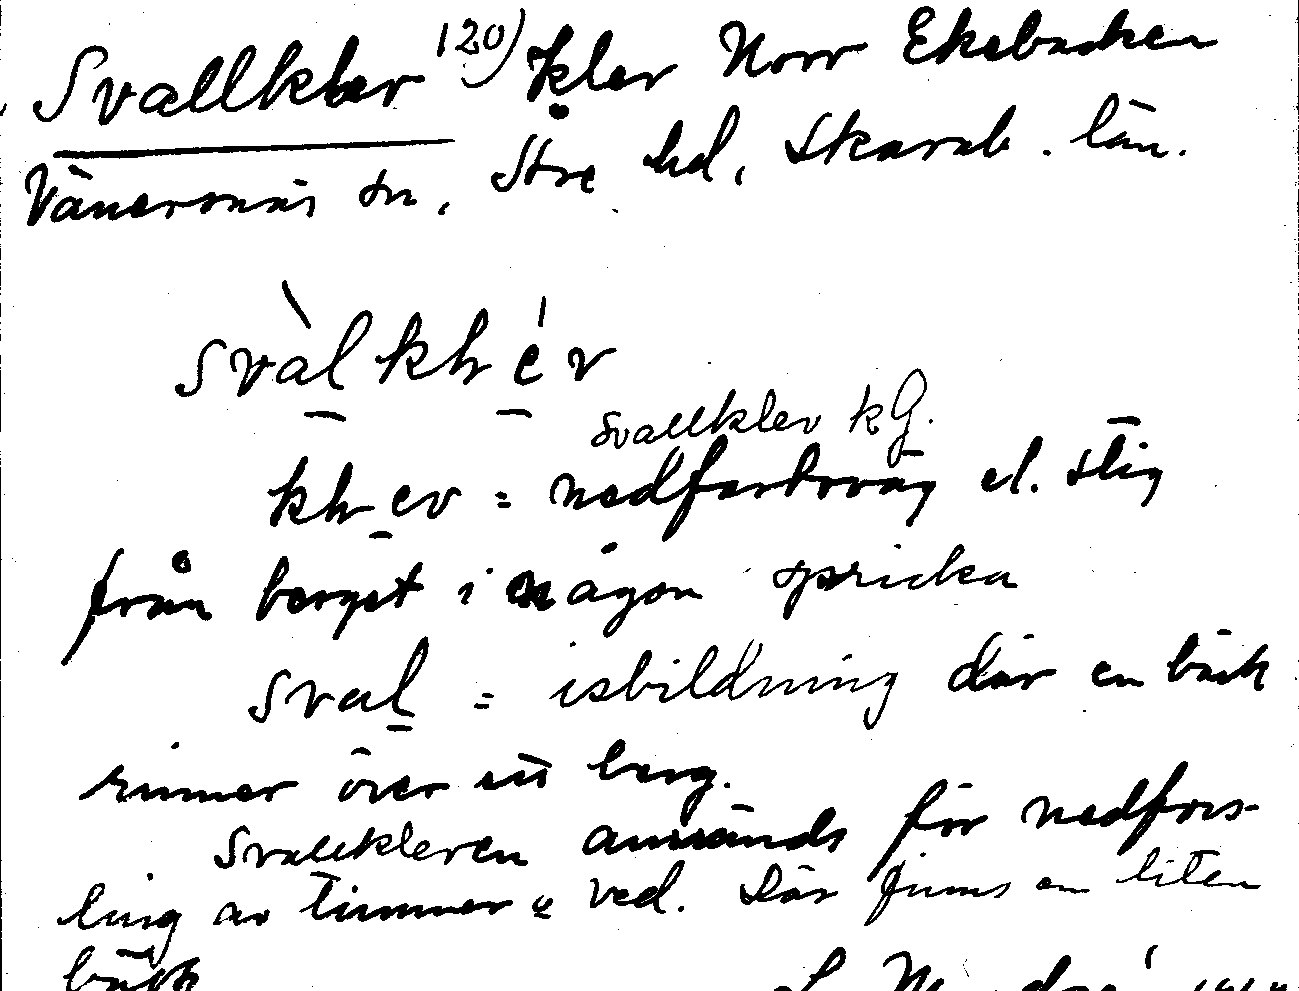 Svallklev 120) klev Norr Ekebacken
Vänersnäs sn, Åse hd, Skarab. län.
svàlkhév
svallklev kG.
khev = nedfartsväg el. stig
från berget i någon spricka
sval = isbildning där en bäck
rinner över ett berg.
Svallkleven används för nedfors-
ling av timmer o ved. Där finns en liten
bäck